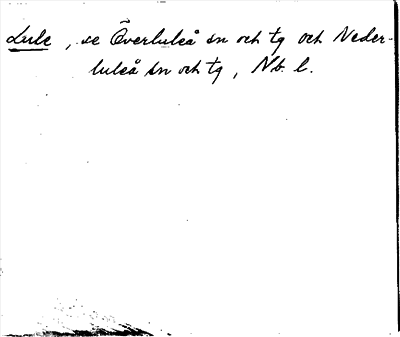 Lule, se Överluleå sn och tg och Neder-
luleå sn och tg, Nb. l.